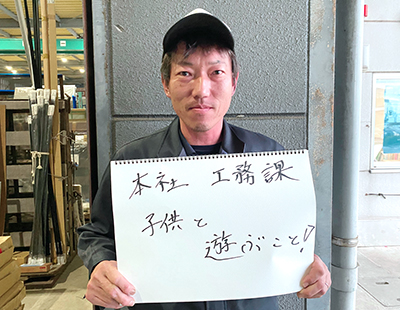 本社 工務課
子供と
遊ぶこと!